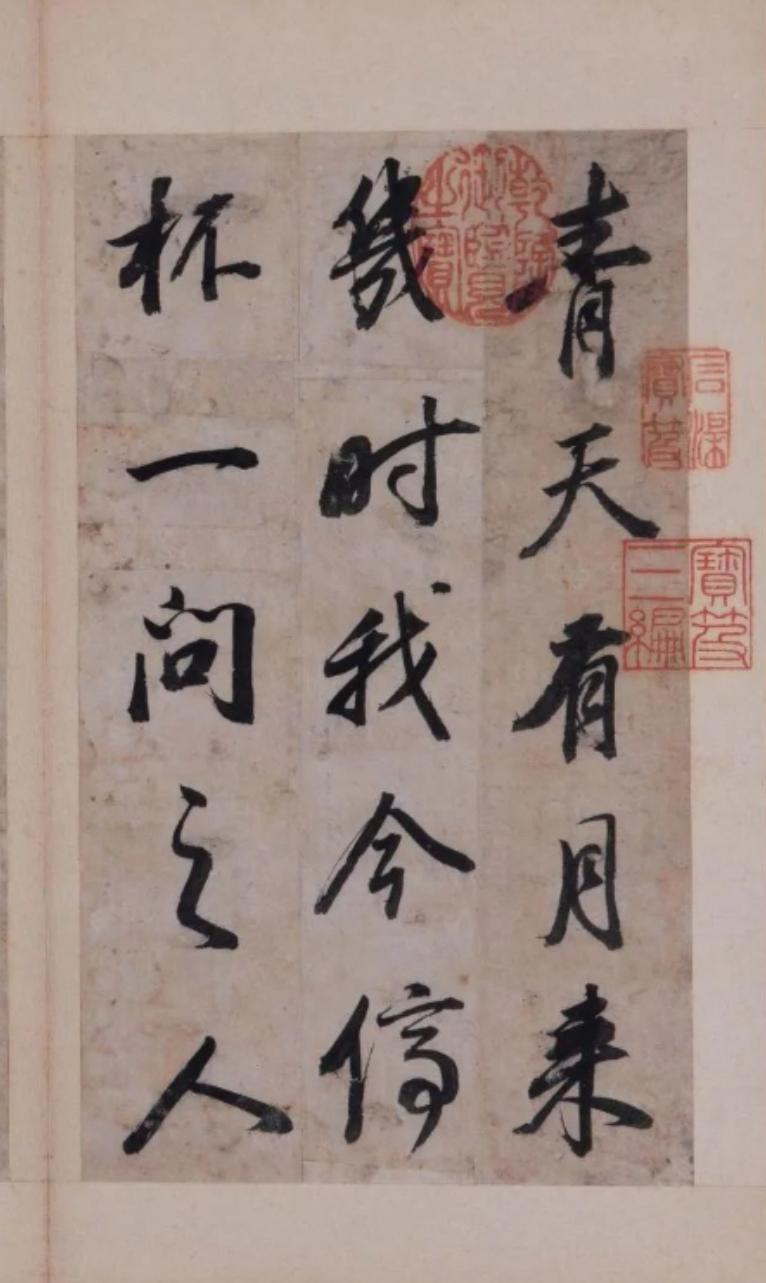 青天有月来
幾时我今停
杯一问之人
乾隆御覽之寶
石渠寶笈
寶笈三編